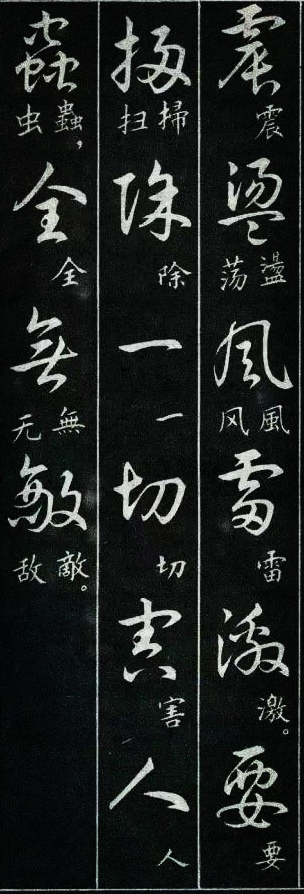 震 震 盪 盪荡 風 風风 雷 雷 激 激。 要 要
掃 掃扫 除 除 一 一 切 切 害 害 人 人
蟲 蟲,虫 全 全 無 無无 敵 敵。敌